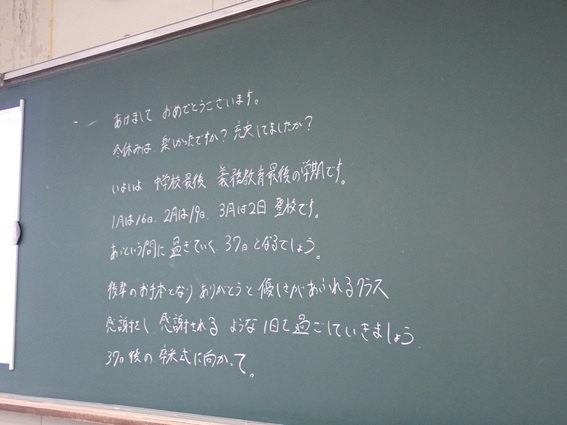 あけまして おめでとうございます。
冬休みは 楽しかったですか？充実してましたか？
いよいよ 中学校最後 義務教育最後の学期です。
1月は16日、2月は19日、3月は2日 登校です。
あっという間に 過ぎていく 37日となるでしょう。
後輩のお手本となり ありがとうと 優しさがあふれるクラス
感謝をし 感謝される ような 1日を過ごしていきましょう
37日後の 卒業式に向かって。